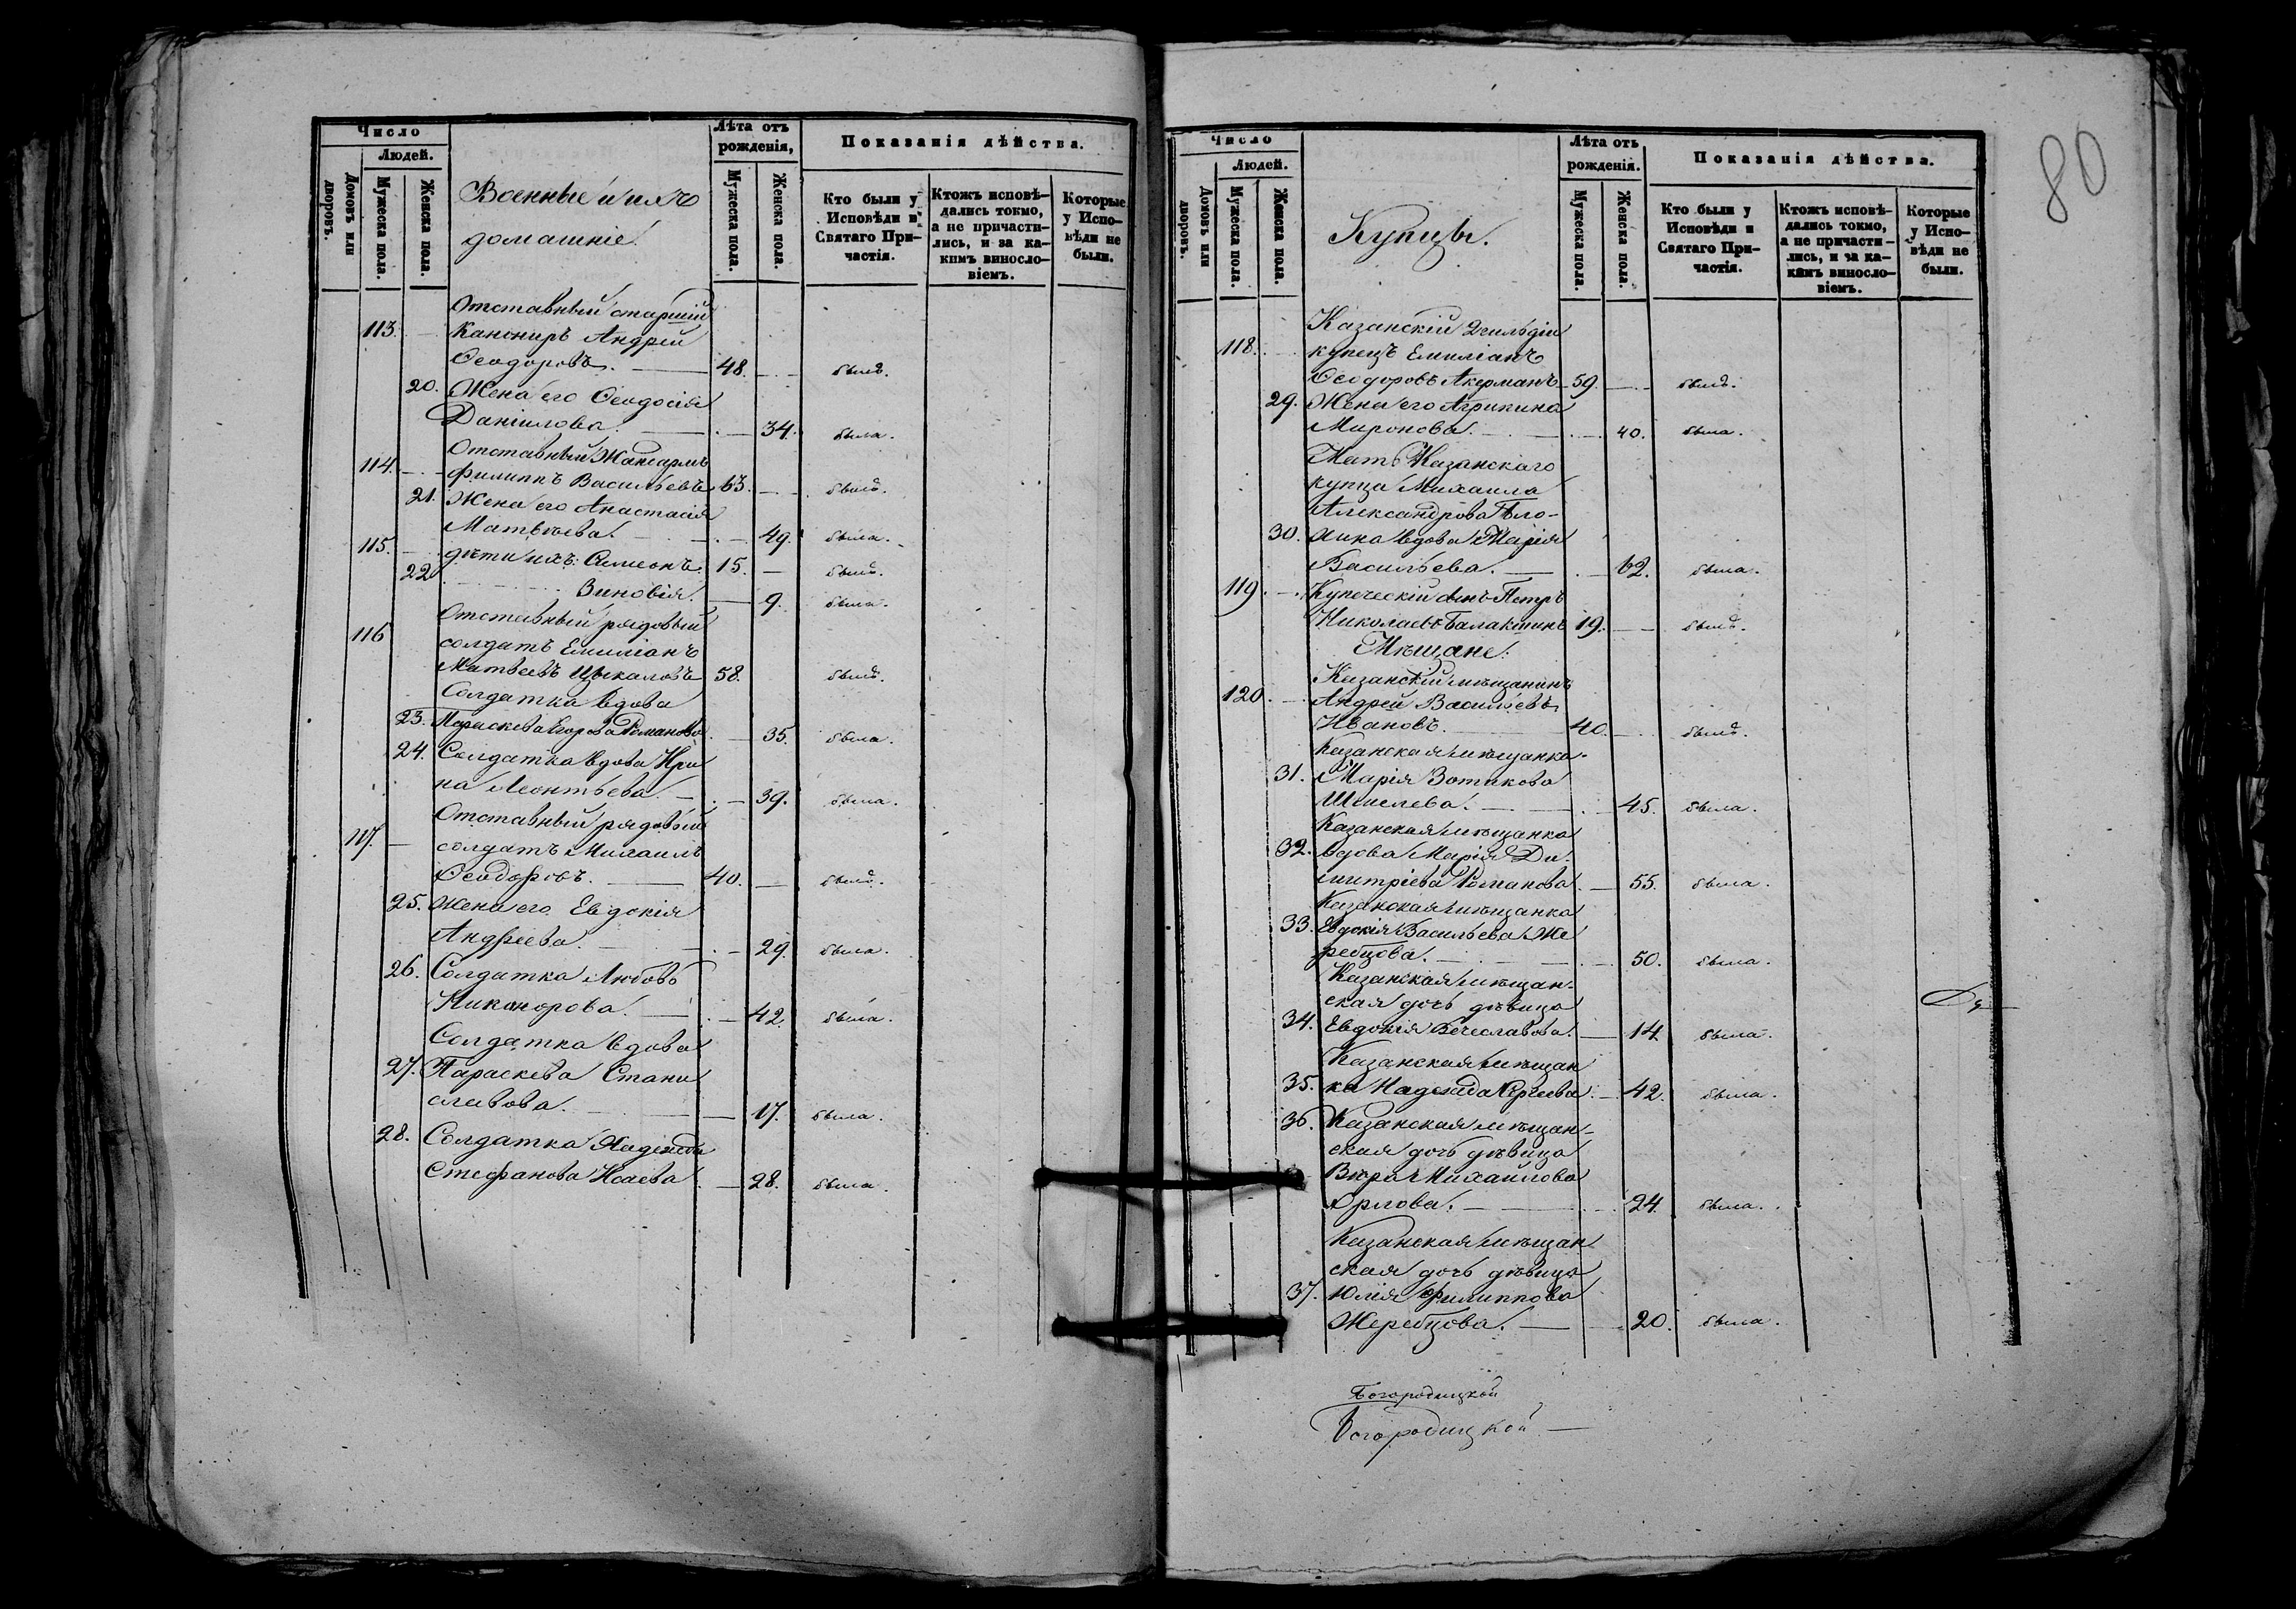 Число
Людей.
Домовъ или дворовъ.
Мужеска пола.
Женска пола.
Военные и ихъ
домашніе.
Лѣта отъ
рожденія,
Мужеска пола.
Женска пола.
Показанія дѣйства.
Кто были у
Исповѣди и
Святаго При-
частія.
Ктожъ исповѣ-
дались токмо,
а не причасти-
лись, и за ка-
кимъ виносло-
віемъ.
Которые
у Испо-
вѣди не
были.
Отставный старшій
113. Канониръ Андрей
Ѳеодоровъ. 48. былъ.
20. Жена его Ѳеодосія
Даніилова. 34. была.
Отставный Жандармъ
114. Филиппъ Васильевъ 63. былъ.
21. Жена его Анастасія
Матвѣева. 49. была.
115. дѣти ихъ: Симеонъ 15. былъ.
22 Зиновія. 9. была.
Отставный рядовый
116 солдатъ Емиліанъ
Матвеевъ Цыкаловъ 58. былъ.
Солдатка вдова
23. Параскева Егорова Романова 35. была.
24. Солдатка вдова Ири
на Леонтьева. 39. была.
Отставный рядовый
117. солдатъ Михаилъ
Ѳеодоровъ. 40. былъ.
25. Жена его Евдокія
Андреева. 29. была.
26. Солдатка Любовь
Никонорова. 42. была.
Солдатка вдова
27. Параскева Стани
славова. 17. была.
28. Солдатка Надежда
Стефанова Исаева 28. была.
80
Число
Людей.
Домовъ или дворовъ.
Мужеска пола.
Женска пола.
Купцы.
Лѣта отъ
рожденія.
Мужеска пола.
Женска пола.
Показанія дѣйства.
Кто были у
Исповѣди и
Святаго При-
частія.
Ктожъ исповѣ-
дались токмо,
а не причасти-
лись, и за ка-
кимъ виносло-
віемъ.
Которые
у Испо-
вѣди не
были.
Казанскій 2 гильдіи
118. купецъ Емиліанъ
Ѳеодоровъ Акерманъ 59. былъ.
29. Жена его Агрипина
Миронова. 40. была.
Мать Казанскаго
купца Михаила
Александрова Бло-
30. хина вдова Марія
Васильева. 62. была.
119. Купеческій сынъ Петръ
Николаевъ Балакшинъ 19. былъ.
Мѣщане.
Казанскій мѣщанинъ
120. Андрей Васильевъ
Ивановъ. 40. былъ.
Казанская мѣщанка
31. Марія Зотикова
Шмелева. 45. была.
Казанская мѣщанка
32. вдова Марія Ди-
митріева Романова. 55. была.
Казанская мѣщанка
33. Евдокія Васильева Же
ребцова. 50. была.
Казанская мѣщан-
ская дочь дѣвица
34. Евдокія Вячеславова. 14 была.
Казанская мѣщан
35. ка Надежда Сергеева 42. была.
36. Казанская мѣщан-
ская дочь дѣвица
Вѣра Михаилова
Орлова. 24. была.
Казанская мѣщан
ская дочь дѣвица
37. Юлія Филиппова
Жеребцова. 20. была.
Богородицкой
Богородицкой